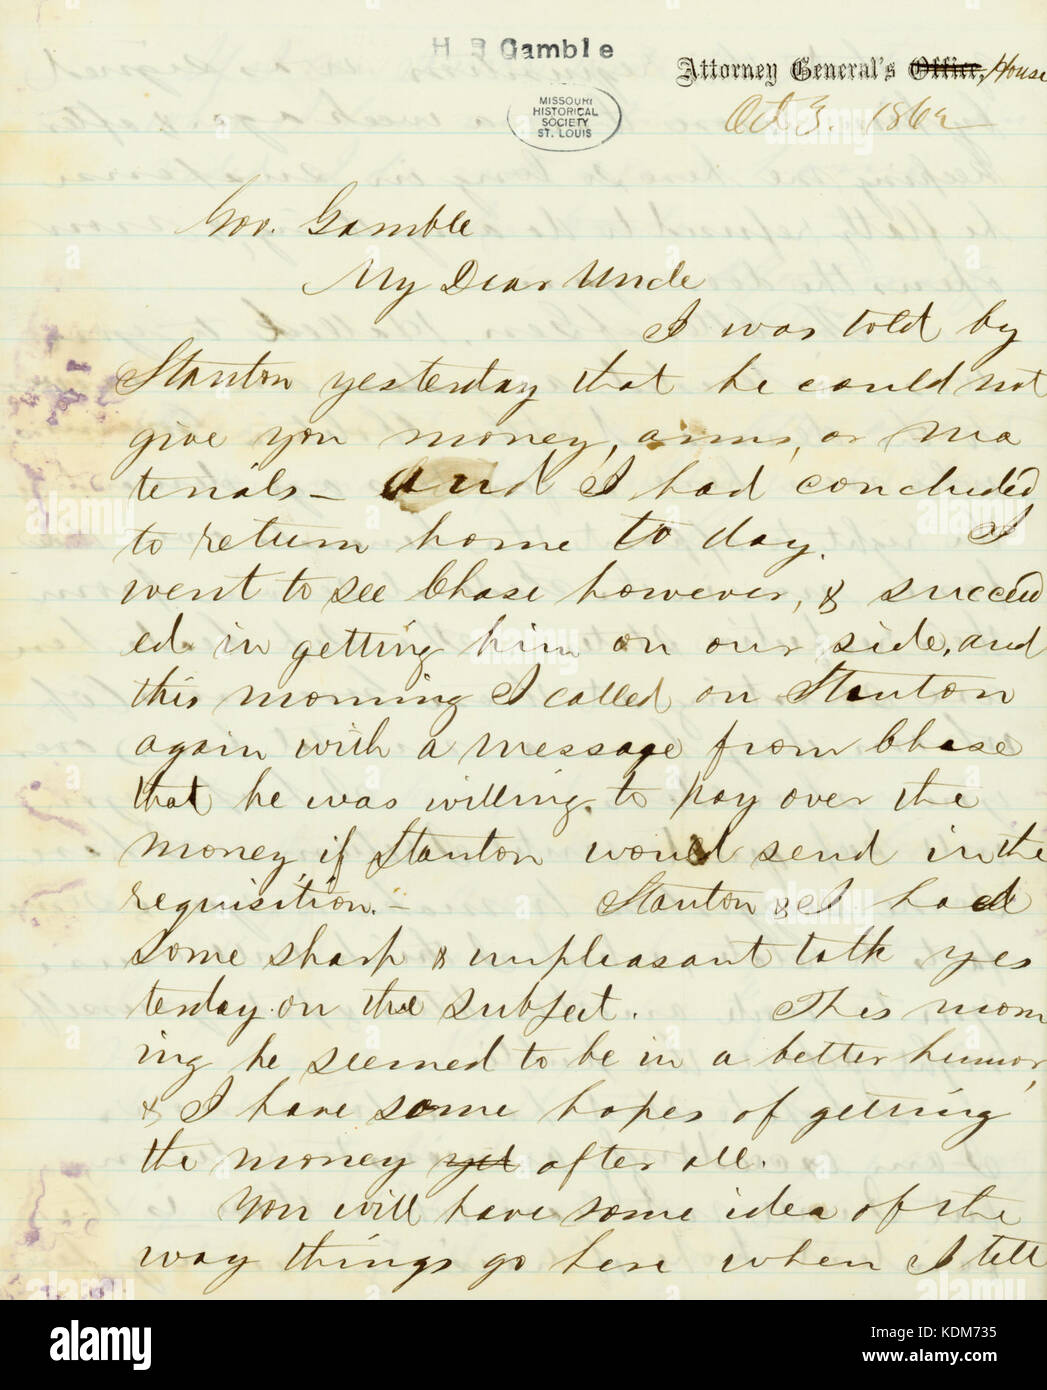 H B Gamble
Attorney General's Office, House
MISSOURI
HISTORICAL
SOCIETY
ST. LOUIS
Oct 3. 1862
Gov. Gamble
My Dear Uncle
I was told by
Stanton yesterday that he could not
give you money, arms, or ma
terials — And I had concluded
to return home to day. I
went to see Chase however, & succeed
ed in getting him on our side, and
this morning I called on Stanton
again with a message from Chase
that he was willing to pay over the
money, if Stanton would send in the
requisition. — Stanton & I had
some sharp & unpleasant talk yes
terday on the subject. This morn
ing he seemed to be in a better humor,
& I have some hopes of getting
the money yet after all.
You will have some idea of the
way things go here when I tell
alamy
Image ID: KDM735
www.alamy.com